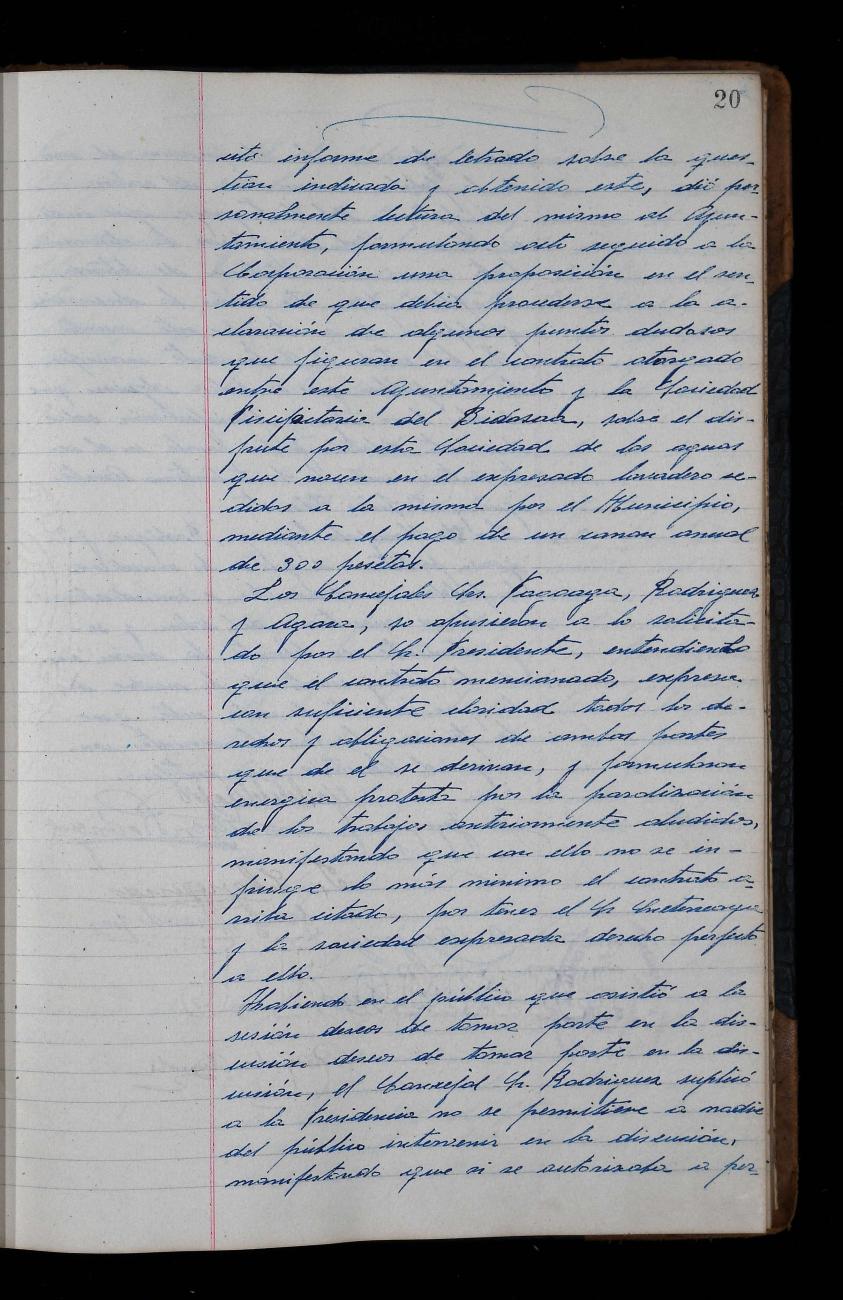 20
citó informe de letrado sobre la ques-
tión indicada y obtenido este, dió per-
sonalmente lectura del mismo al Ayun-
tamiento, formulando acto seguido a la
Corporación una proposición en el sen-
tido de que debia procederse a la a-
claración de algunos puntos dudosos
que figuran en el contrato otorgado
entre este Ayuntamiento y la Sociedad
Piscifactoria del Bidasoa, sobre el dis-
frute por esta Sociedad de las aguas
que nacen en el expresado lavadero ce-
didas a la misma por el Municipio,
mediante el pago de un canon anual
de 300 pesetas.
Los Concejales Srs. Rodriguez
y Agara, se opusieron a lo solicita-
do por el Sr. Presidente, entendiendo
que el contrato mencionado, expresa
con suficiente claridad todos los de-
rechos y obligaciones de ambas partes
que de el se derivan, y formularon
energica protesta por la paralización
de los trabajos anteriormente aludidos,
manifestando que con ello no se in-
fringe lo más minimo el contrato a-
rriba citado, por tener el Sr.
y la sociedad expresada derecho perfecto
a ello.
Habiendo en el público que asistió a la
sesión deseos de tomar parte en la dis-
cusión deseos de tomar parte en la dis-
cusión, el Concejal Sr. Rodriguez suplicó
a la Presidencia no se permitiese a nadie
del público intervenir en la discusión,
manifestando que si se autorizaba a per-